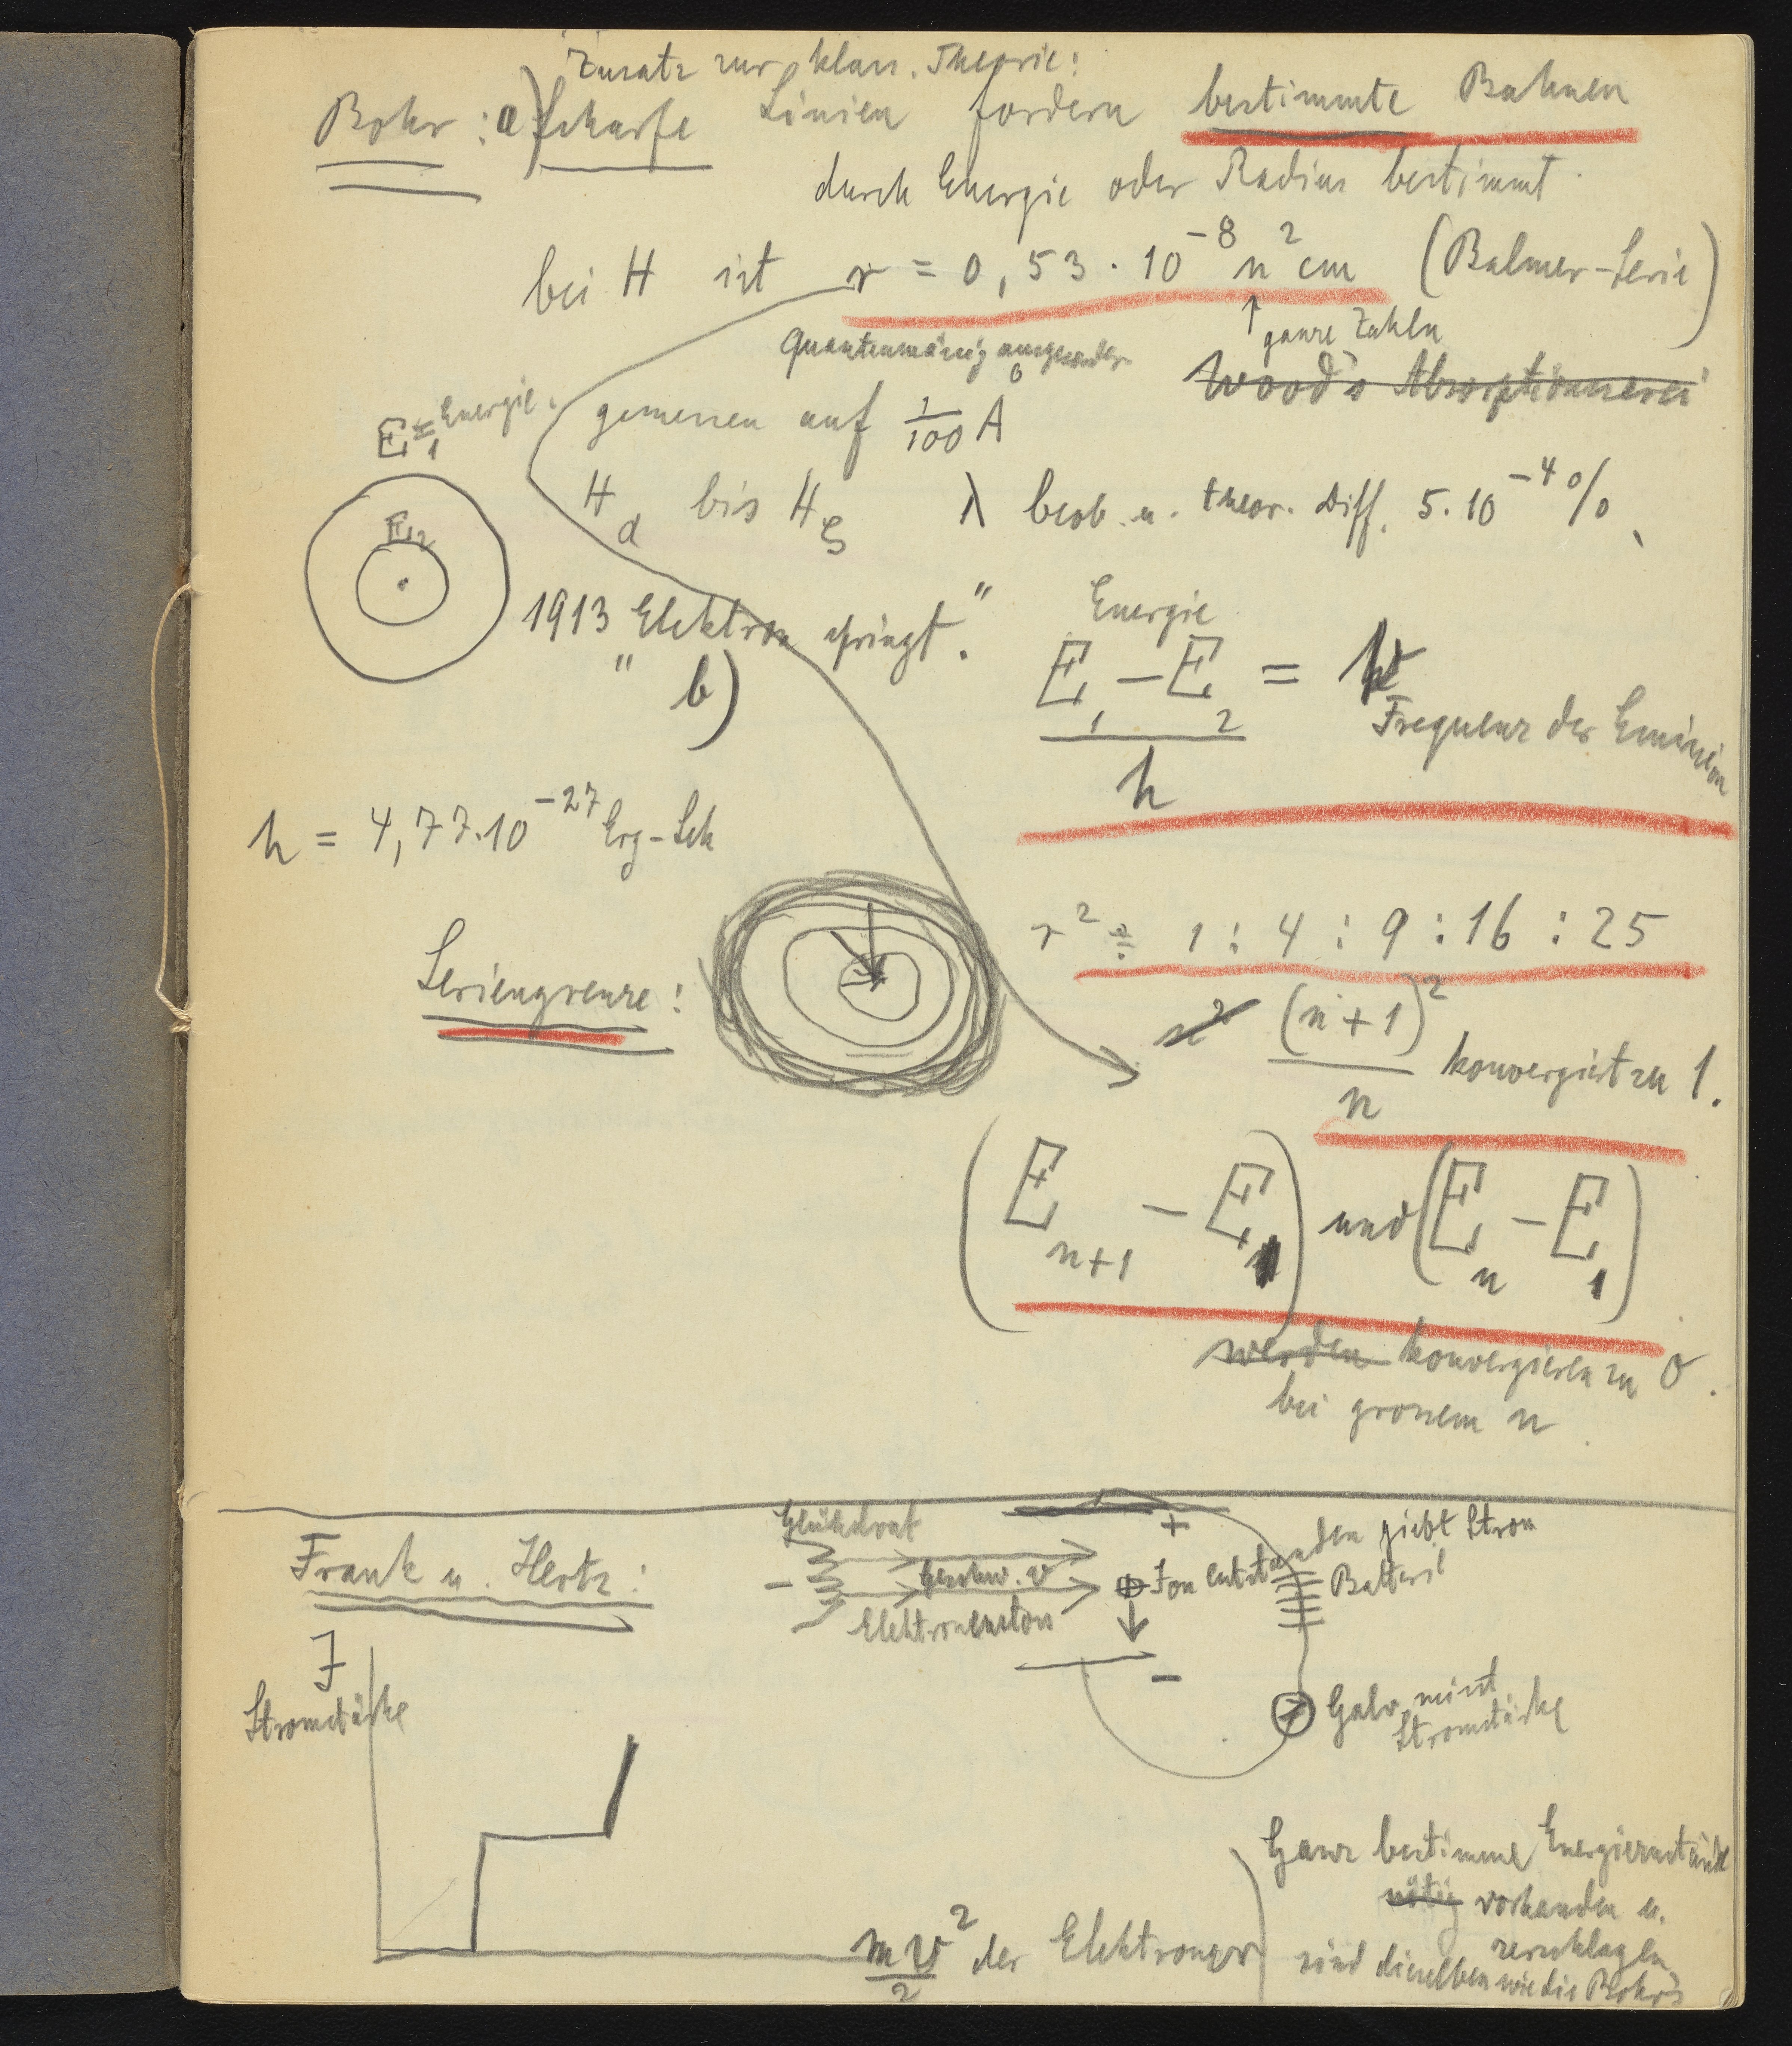 Zusatz zur klass. Theorie:
Bohr: a) scharfe Linien fordern bestimmte Bahnen
durch Energie oder Radius bestimmt
bei H ist r = 0,53 · 10⁻⁸ n² cm (Balmer-Serie)
↑ ganze Zahlen
quantenmässig
Wood's Absorptionsserie
E₁ = Energie.
gemessen auf 1/100 Å
E₂
Hα bis Hζ λ beob. u. theor. Diff. 5.10⁻⁴ %
1913 „Elektron springt."
b)
Energie
(E₁ – E₂)/h =
Frequenz der Emission
h = 4,77·10⁻²⁷ Erg-Sek
r² = 1 : 4 : 9 : 16 : 25
Seriengrenze:
n² (n+1)²/n konvergiert zu 1.
(Eₙ₊₁ – Eₙ) und (Eₙ – E₁)
werden konvergieren zu 0.
bei grossem n
Frank u. Hertz:
Glühdrat
+
– Geschw. v
Elektronenstoss
Ion entstanden giebt Strom
Batterie
–
Galv. misst
Stromstärke
J
Stromstärke
mv²/2 der Elektronen
Ganz bestimme Energiezustände
nötig vorhanden u.
zerschlagen
sind dieselben wie die Bohr's